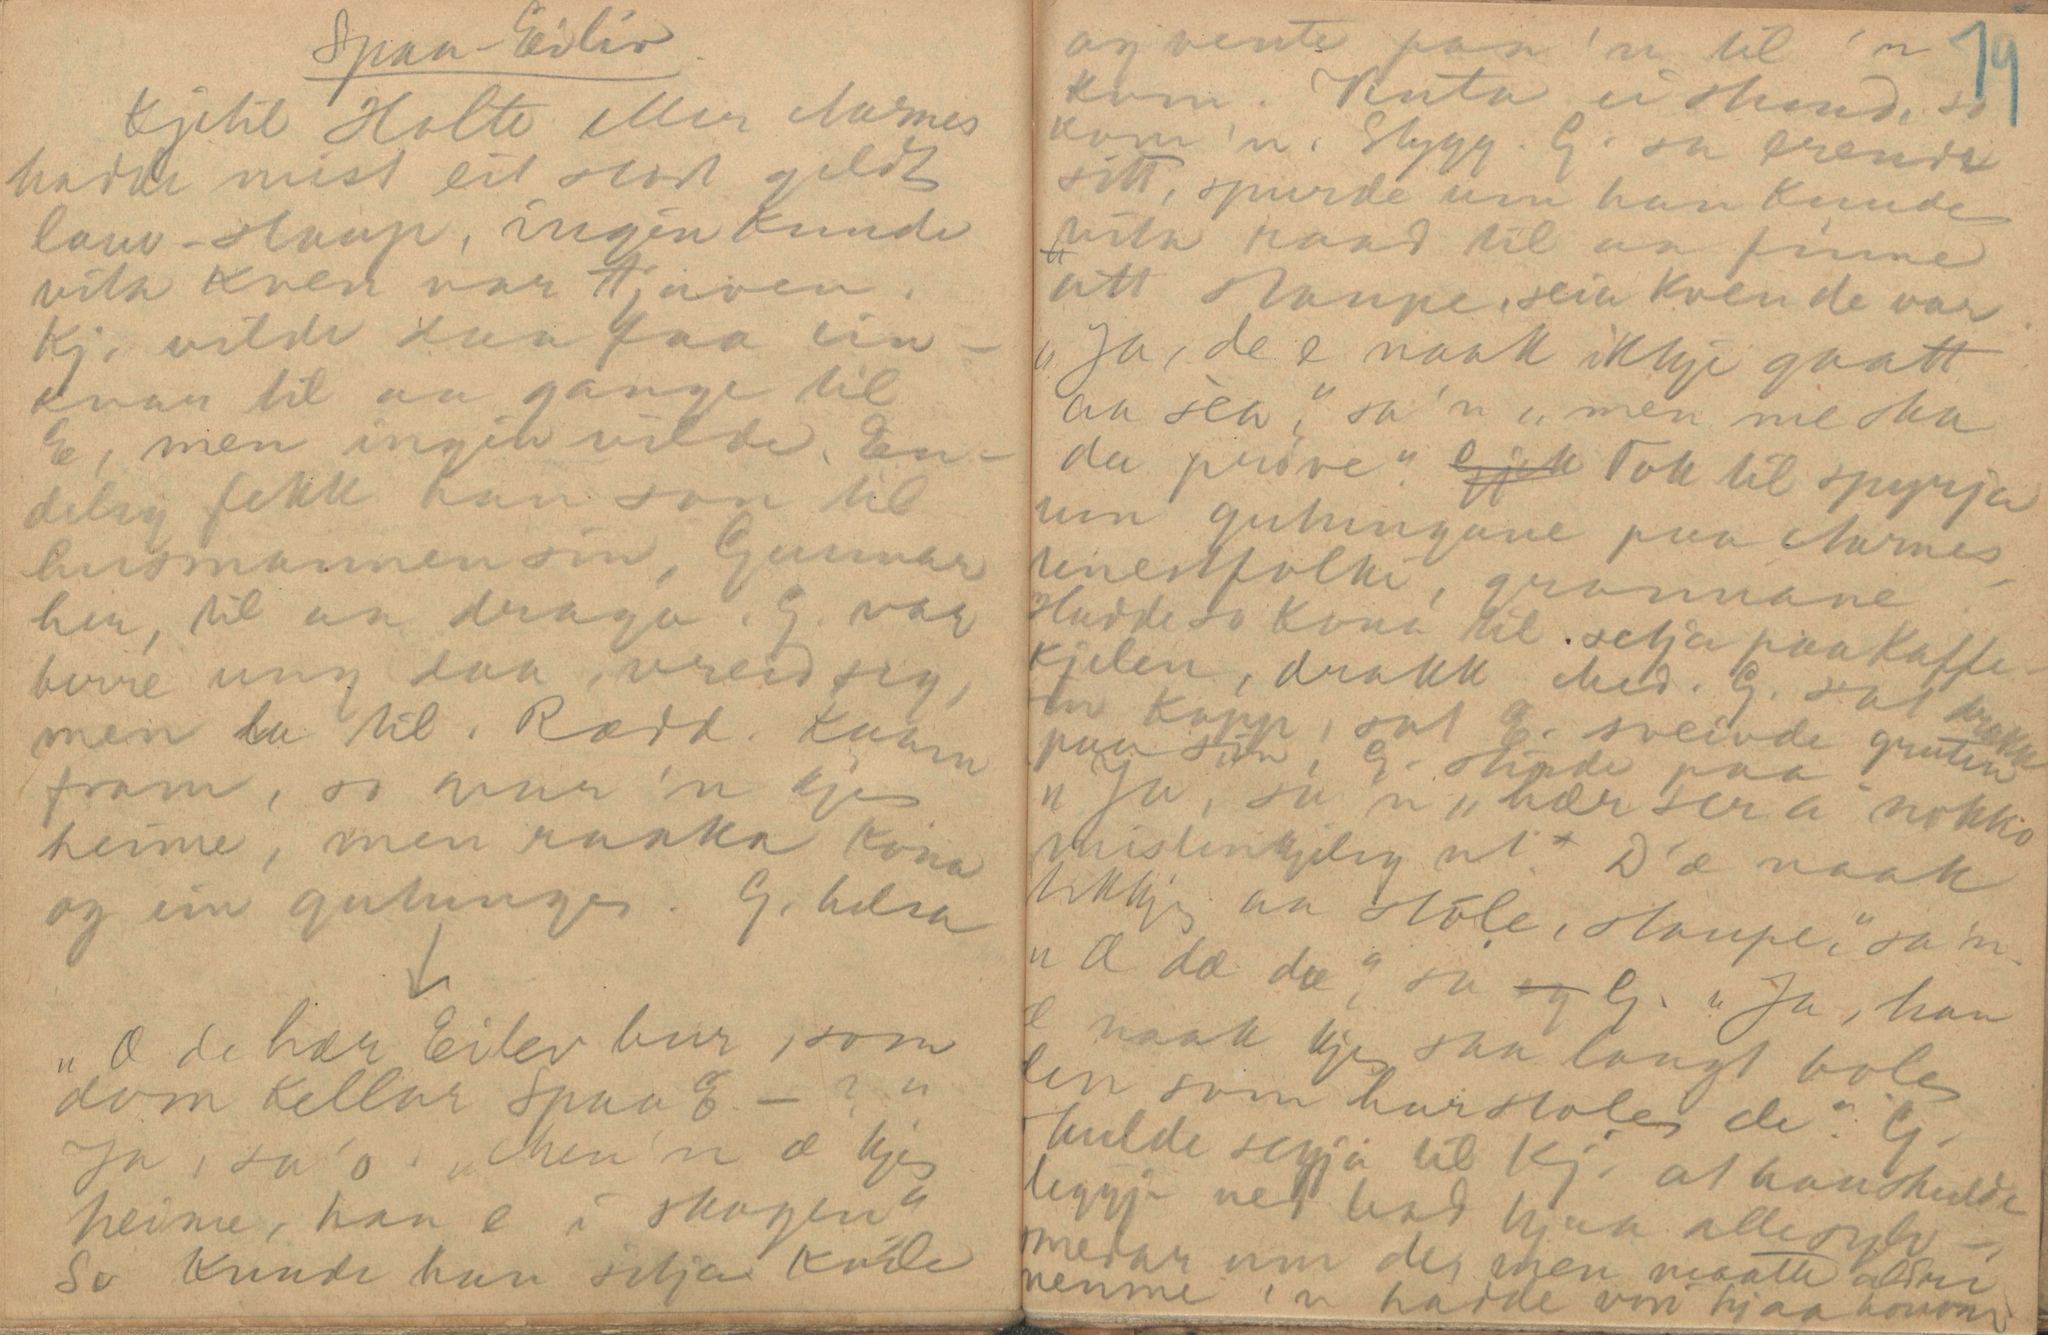 Spaa-Eiliv.
Kjetil Holte eller Aarnes
hadde mist eit stort gildt
laav-staup, ingen kunde
vita kven var tjuven.
Kj. vilde daa faa ein-
kvar til aa gange til
E, men ingen vilde. En-
deleg fekk han son til
husmannen sin, Gunnar
her, til aa draga. G. var
berre ung daa, vreid seg,
men la til. Rædd. Kaam
fram, so var 'n kje
heime, men raaka kona
og ein gutunge. G. helsa
↓
„Æ de hær Eilev bur, som
dom kallar Spaa E – ? "
Ja, sa 'o. „Men 'n æ kje
heime, han e i skogen"
So kunde han setja kvile
19
og vente paa 'n til 'n
kom. Venta ei stund, so
kom 'n. Stygg. G. sa erende
sitt, spurde um han kunde
vita raad til aa finne
att staupe, seia kven de var.
„Ja, de e naak ikkje gaatt
aa sea," sa 'n „men me ska
da prøve". Gjek Tok til spyrja
um gutungane paa Aarnes
tenestfolki, grannane.
Hadde so kona til setja paa kaffe-
kjelen, drakk med. G. sat drakk
sin kopp, sat E. sveivde gruten
paa sin, G. stirde paa
„Ja, sa 'n „hær ser a nokko
mistenkjeleg ut." D'æ naak
ikkje aa støle, staupe," sa 'n.
„Æ dæ dæ", sa og G. „Ja, han
æ naak kje saa langt bole
den som har stole de". G.
skulde seggja til Kj. at han skulde
leggja ned bod hjaa alle sylv-
smedar um de, men maatte aldri
nemne 'n hadde vori hjaa honom